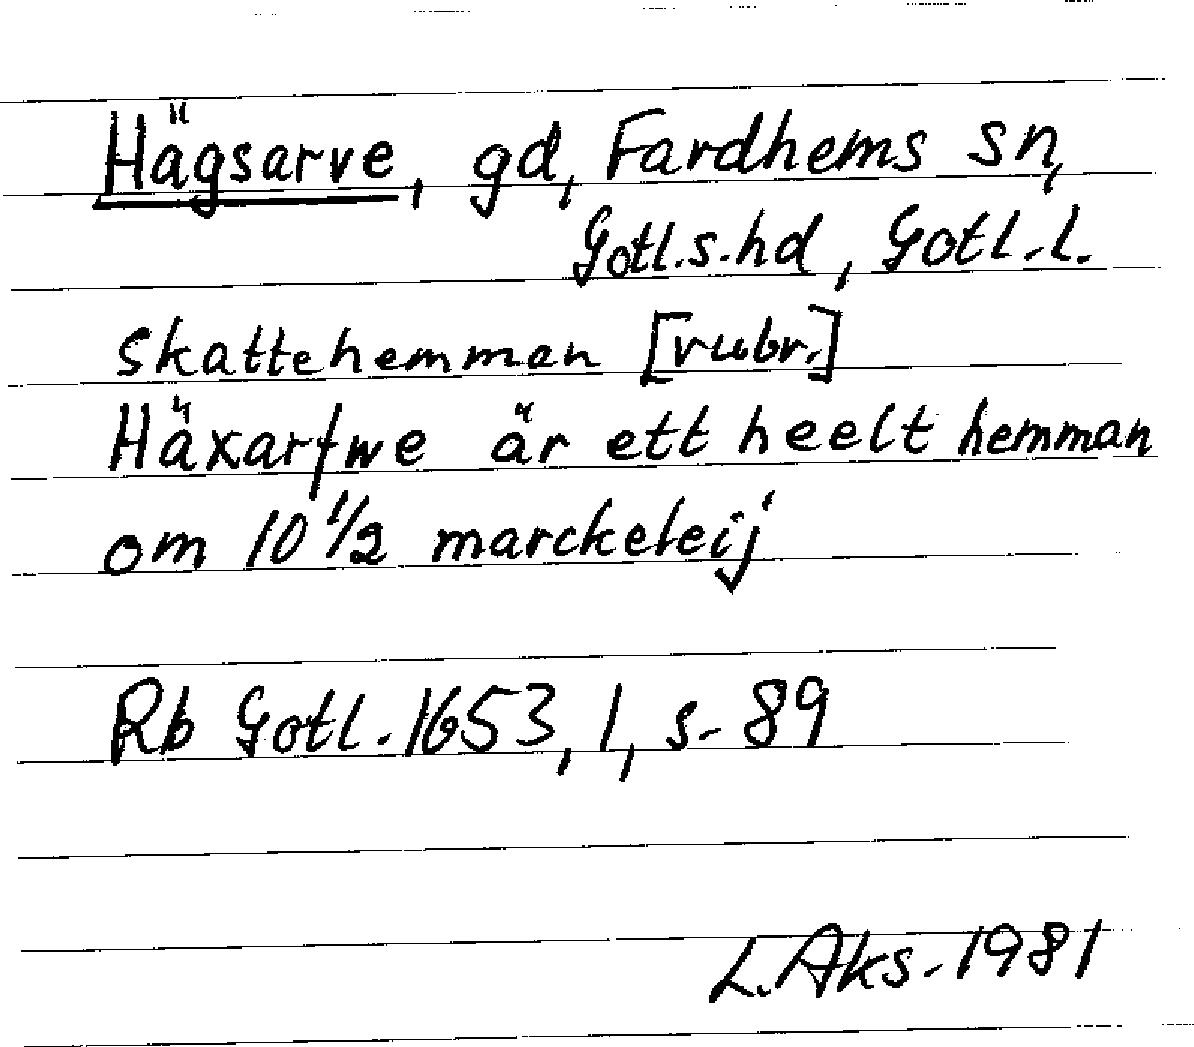 Hägsarve, gd, Fardhems sn,
Gotl.s.hd, Gotl.l.
Skattehemman [rubr.]
Häxarfwe är ett heelt hemman
om 10 1/2 marckeleij
Rb Gotl. 1653, 1, s. 89
L. Aks. 1981